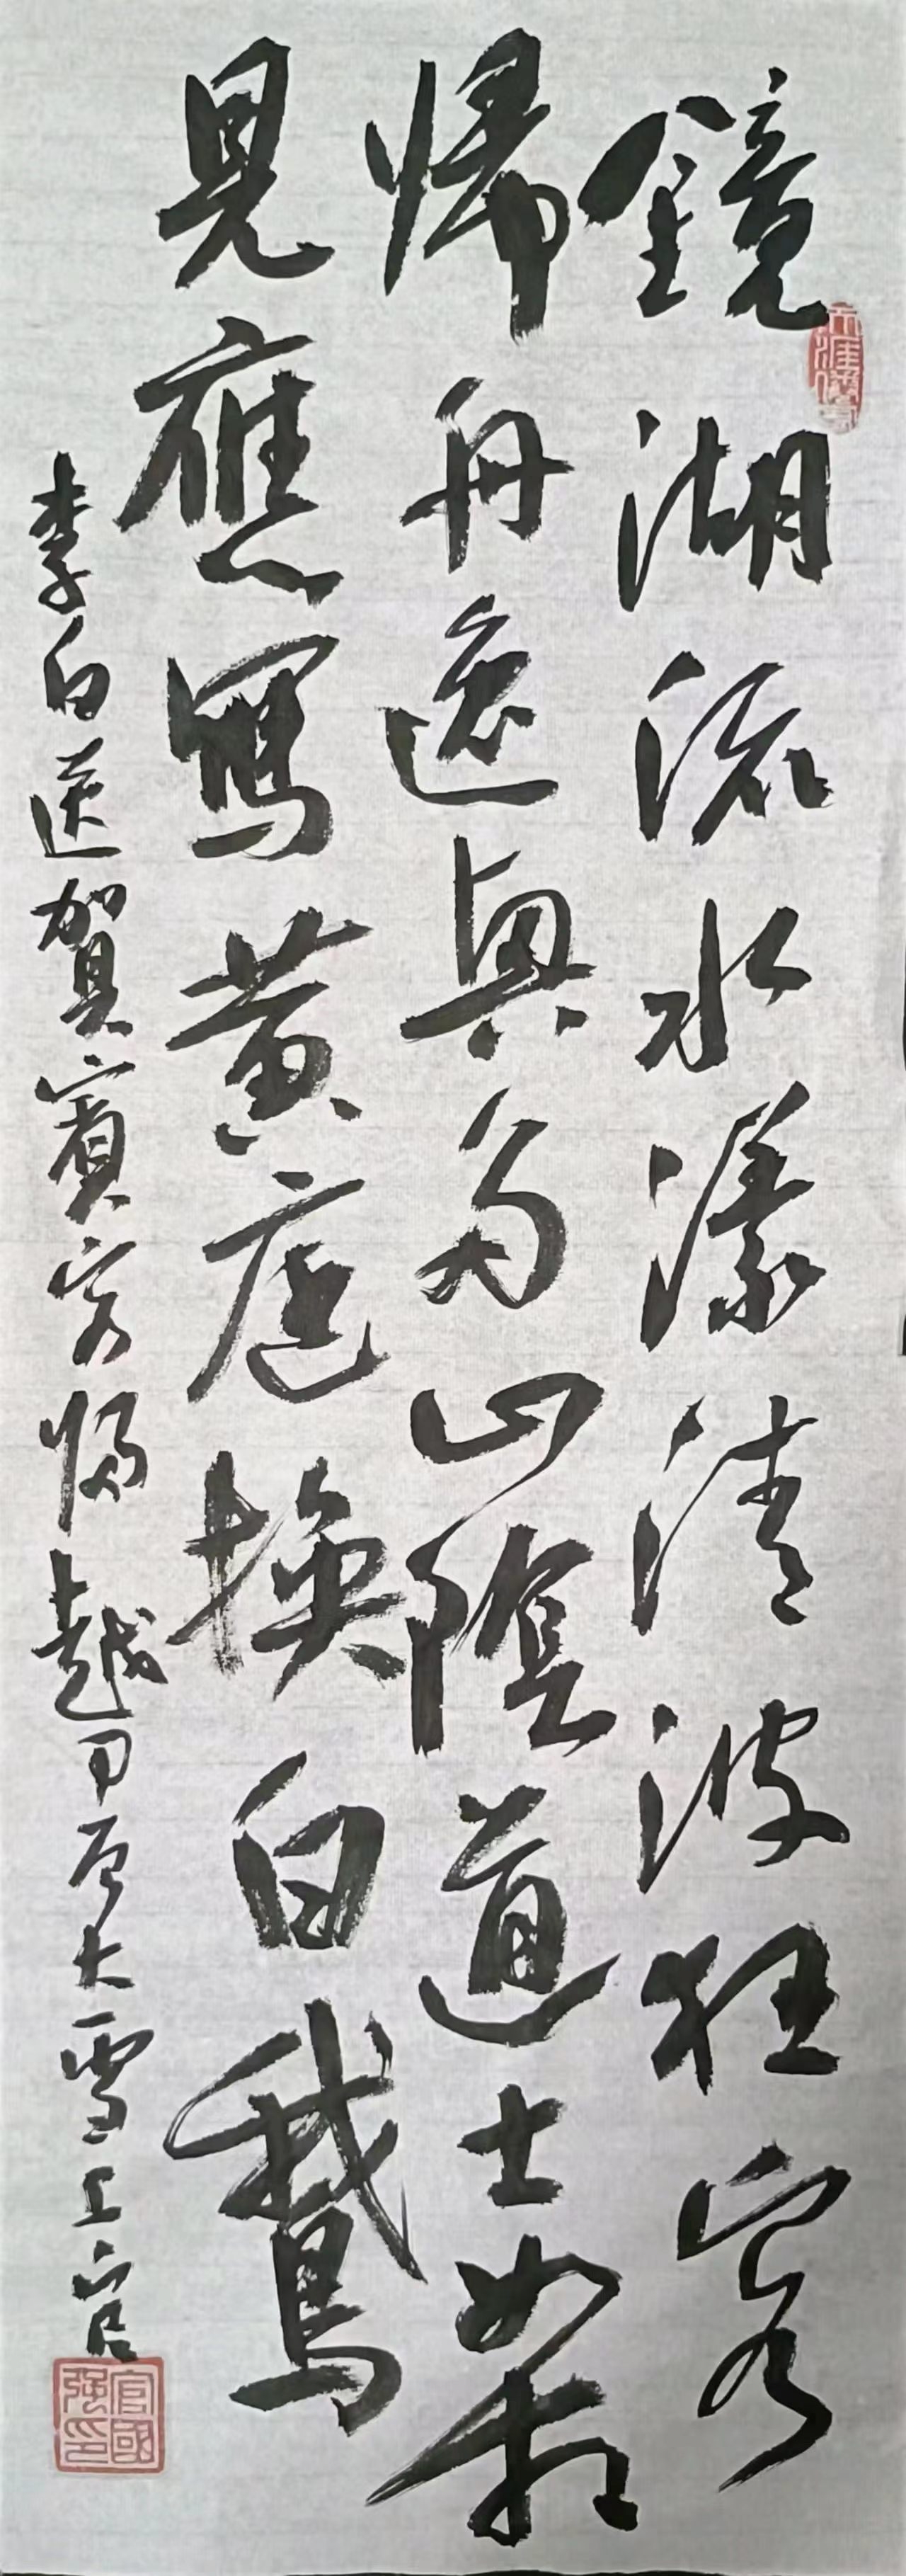 鏡湖流水漾清波狂客
歸舟逸興多山陰道士如相
見應寫黃庭換白鵝
李白送賀賓客歸越甲辰大雪 官
官國强印